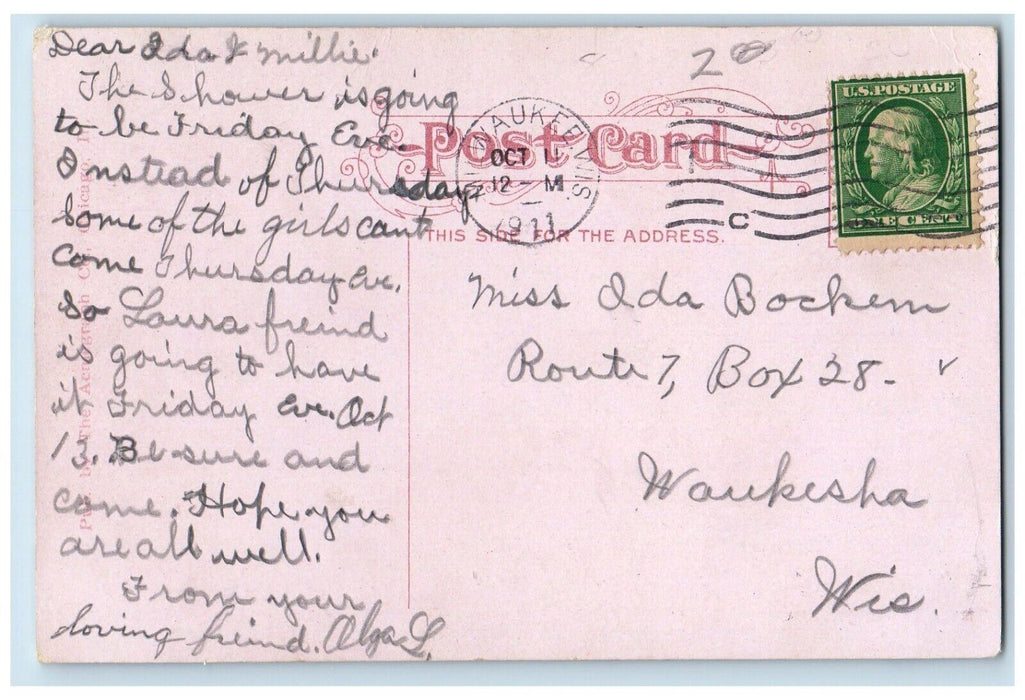 Dear Ida & Millie.
The Shower is going
to be Friday Eve.
Instead of Thursday
Some of the girls cant
come Thursday Eve.
So Laura freind
is going to have
it Friday Eve. Oct
13. Be sure and
come. Hope you
are all well.
From your
loving freind. Olga L.
20
Post Card
THIS SIDE FOR THE ADDRESS.
MILWAUKEE, WIS.
OCT 11
12 - M
1911
C
U.S. POSTAGE
ONE CENT
Miss Ida Bockem
Route 7, Box 28.
Waukesha
Wis.